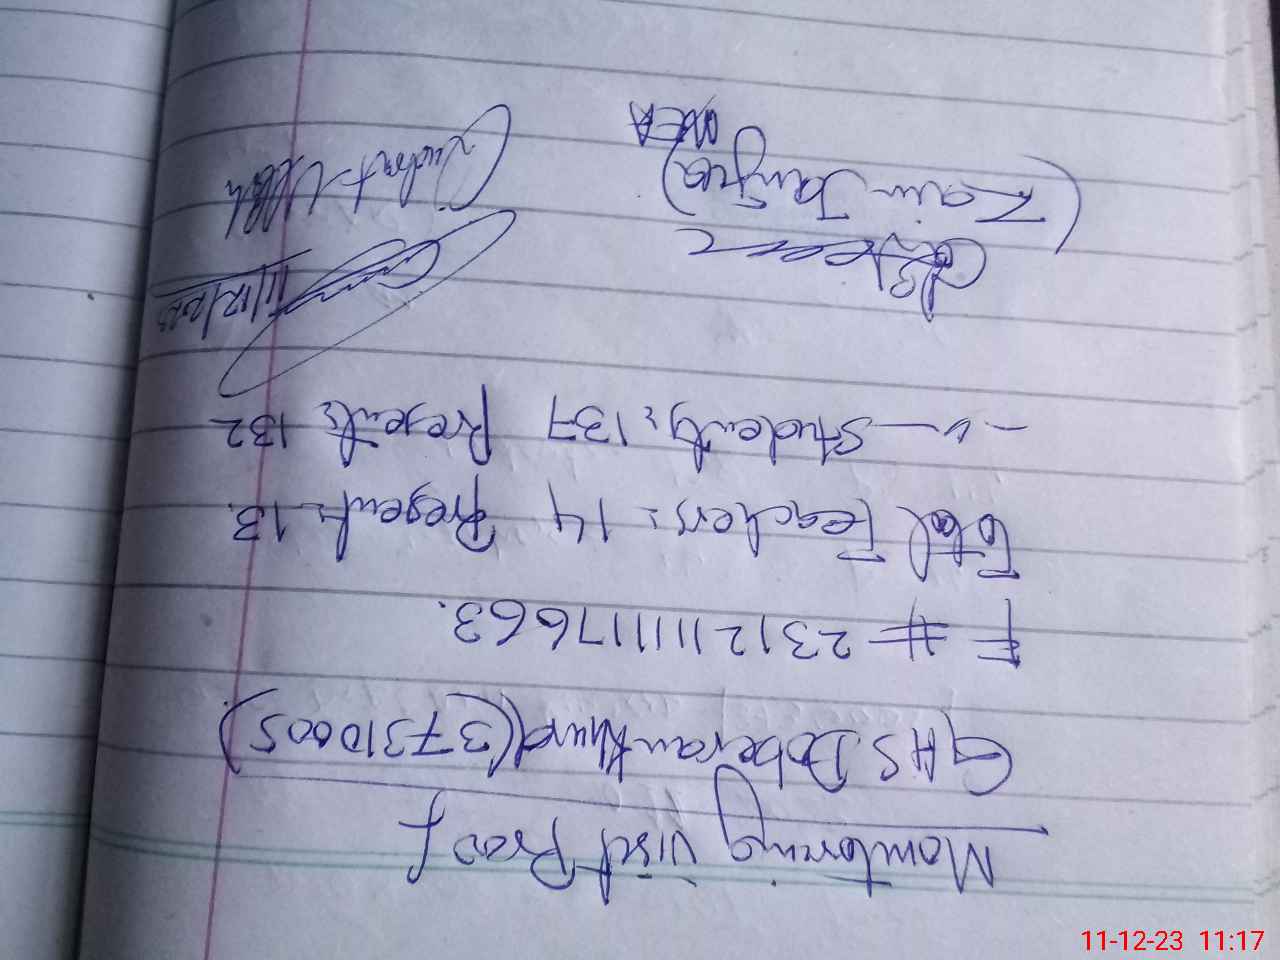 Monitoring Visit Proof
GHS Doberan Khurd (37310005)
F # 2312111117663.
Total Teachers: 14 Present: 13.
-〃- Students: 137 Present: 132
11/12/2023
(Zain Janfza)
Qudrat Ullah
11-12-23 11:17